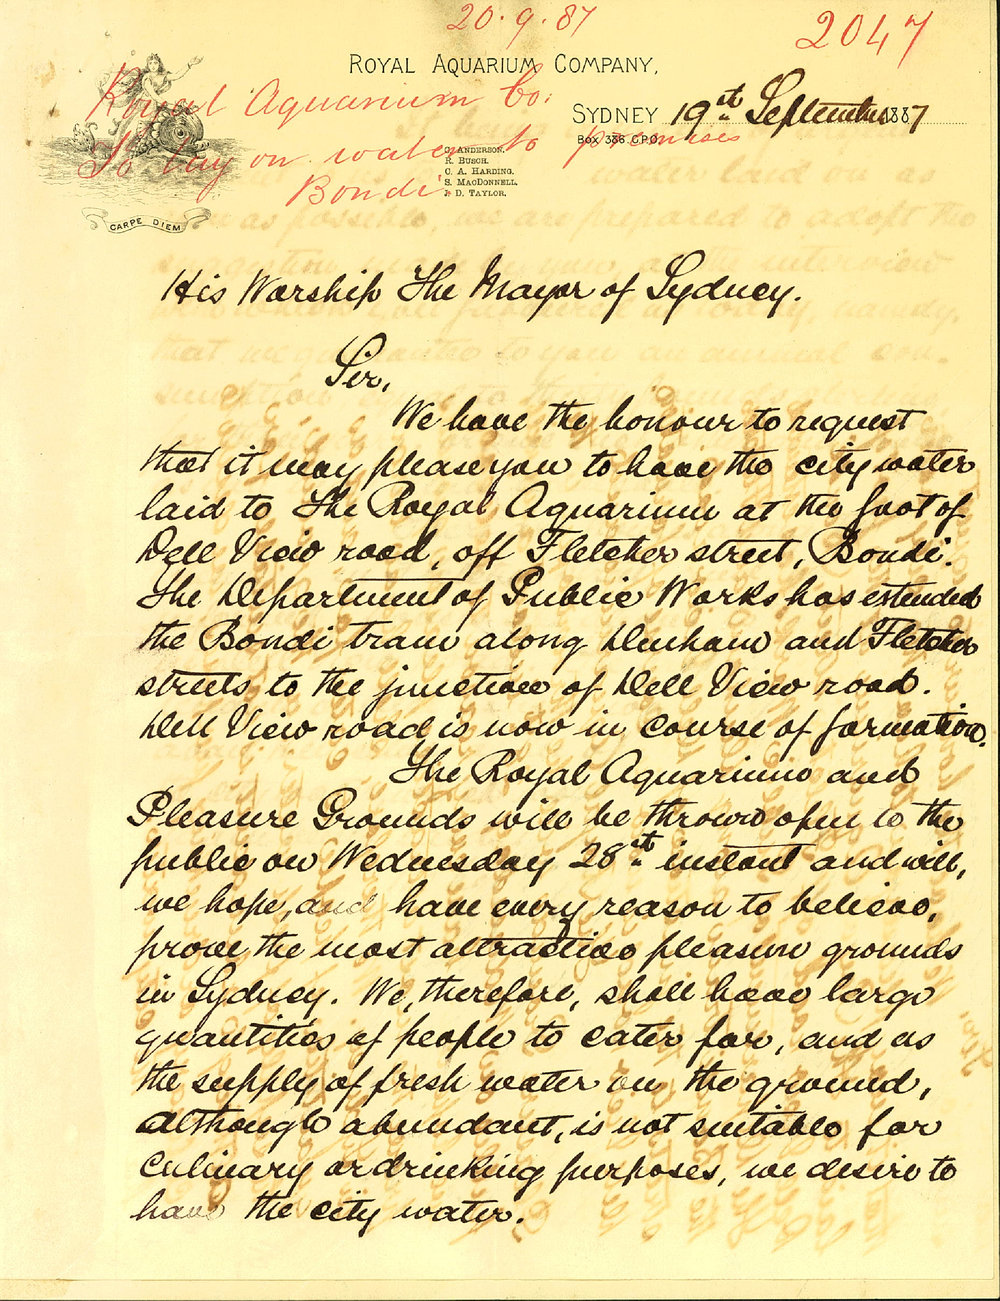 20.9.87
2047
ROYAL AQUARIUM COMPANY,
Royal Aquarium Co.
SYDNEY 19th September 1887
BOX 386 G.P.O.
To lay on water to premises
Bondi
G. ANDERSON.
R. BUSCH.
C. A. HARDING.
S. MACDONNELL.
J. D. TAYLOR.
CARPE DIEM
His Worship The Mayor of Sydney.
Sir,
We have the honour to request
that it may please you to have the city water
laid to The Royal Aquarium at the foot of
Dell View road, off Fletcher street, Bondi.
The Department of Public Works has extended
the Bondi tram along Denham and Fletcher
streets to the junction of Dell View road.
Dell View road is now in course of formation.
The Royal Aquarium and
Pleasure Grounds will be thrown open to the
public on Wednesday 28th instant and will,
we hope, and have every reason to believe,
prove the most attractive pleasure grounds
in Sydney. We, therefore, shall have large
quantities of people to cater for, and as
the supply of fresh water on the ground,
although abundant, is not suitable for
culinary or drinking purposes, we desire to
have the city water.